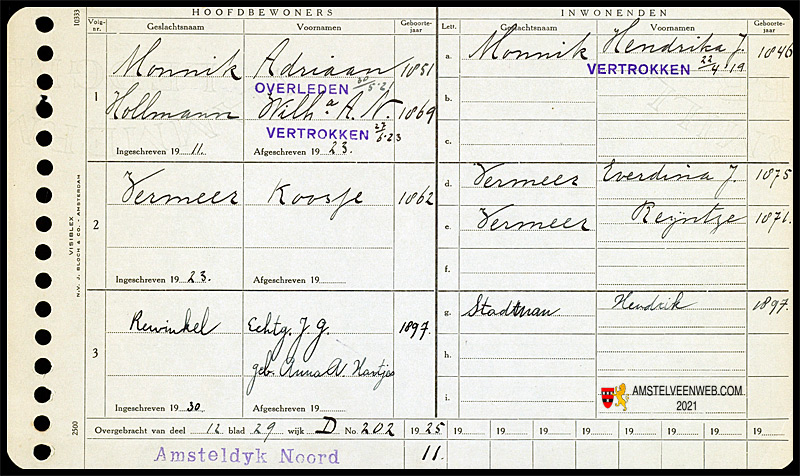 HOOFDBEWONERS
INWONENDEN
Volg-nr.
Geslachtsnaam
Voornamen
Geboorte-jaar
Lett.
Geslachtsnaam
Voornamen
Geboorte-jaar
10333
1
Monnik Adriaan 1851
OVERLEDEN 30/5-21
Hollmann Wilh.a A. W. 1869
VERTROKKEN 23/6-23
Ingeschreven 19 11. Afgeschreven 19 23.
a. Monnik Hendrika J. 1846
VERTROKKEN 22/4/19
b.
c.
2
Vermeer Koosje 1862
Ingeschreven 19 23. Afgeschreven 19
d. Vermeer Everdina J. 1875
e. Vermeer Reijntje 1871.
f.
3
Rewinkel Echtg. J. G. 1897.
geb. Anna A. Hartjes
Ingeschreven 19 30 Afgeschreven 19
g. Stadtman Hendrik 1897.
h.
i.
VISIBLEX
N.V. J. BLOCH & CO. - AMSTERDAM
2500
AMSTELVEENWEB.COM
2021
Overgebracht van deel 12 blad 29 wijk D No. 202 19 25 19 19 19 19 19 19 19
Amsteldyk Noord 11.